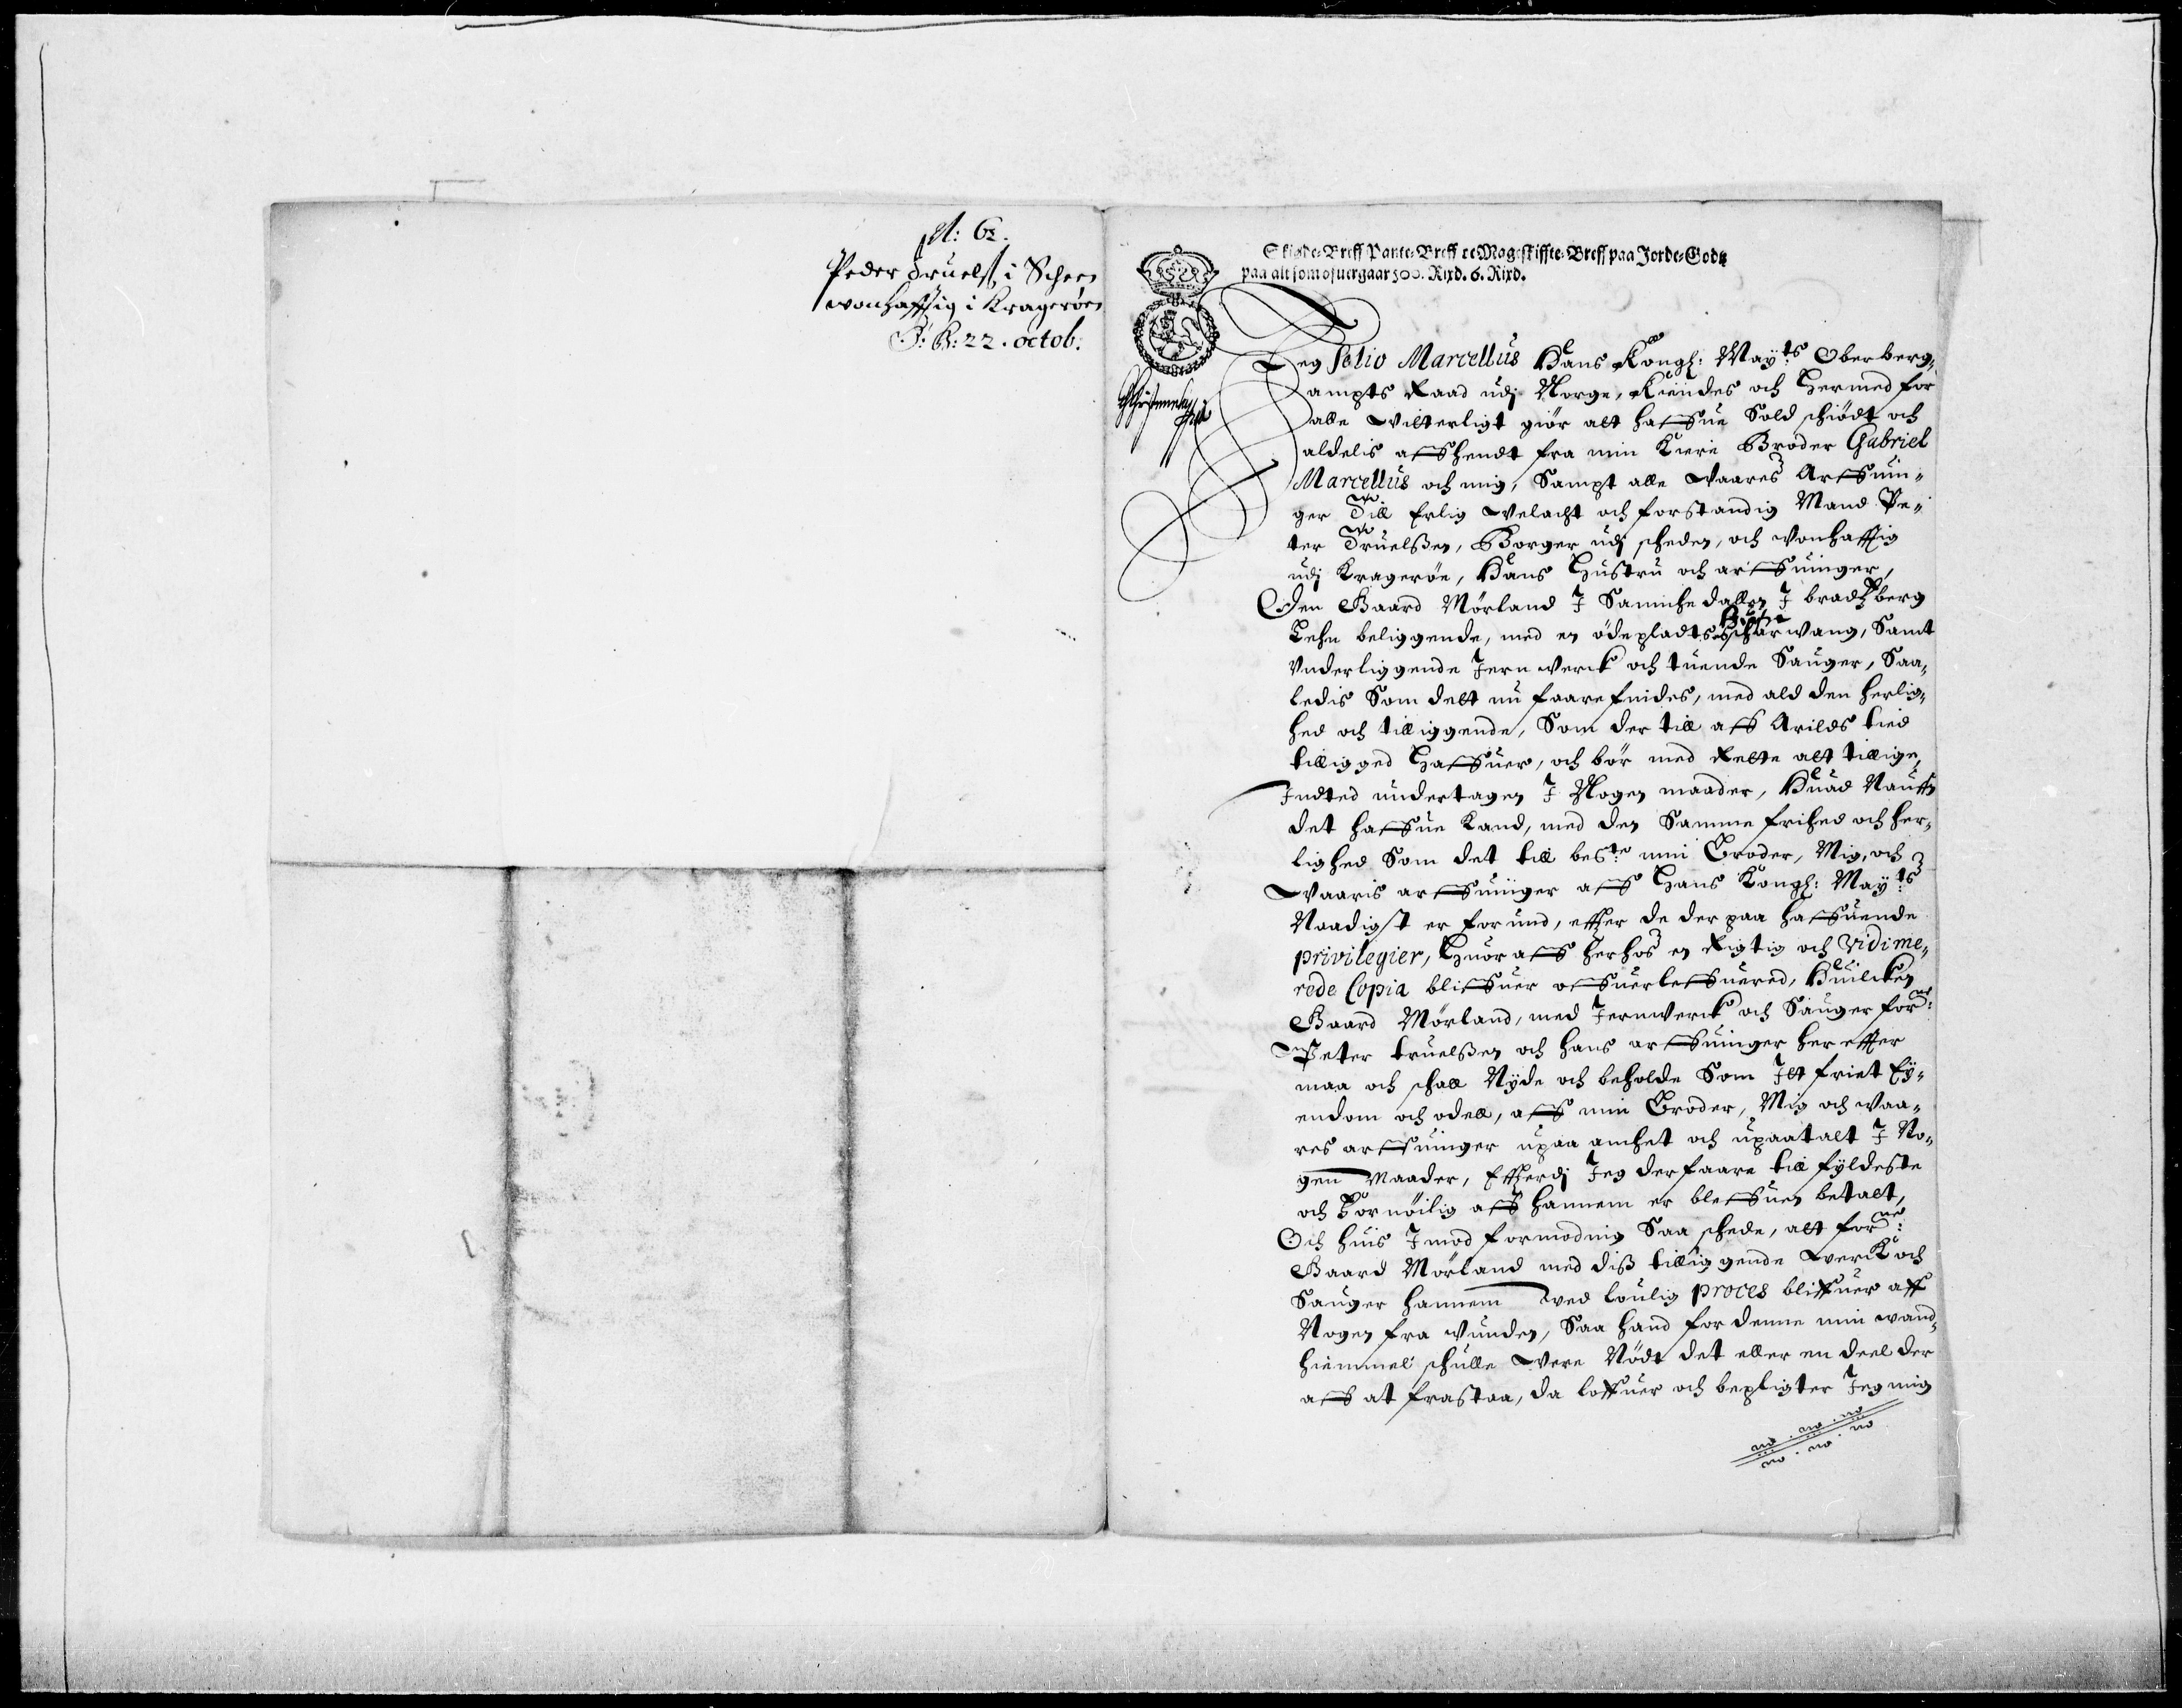 N: 62.
Peder Truels i Scheen
wonhafftig i Kragerøen
22. octob:
Skiøde-Breff Pante-Breff oc Mageskiffte-Breff paa Jorde-Gods
paa alt som ofuergaar 500. Rixd. 6. Rixd.
Jeg Selio Marcellus Hans Kongl: Mayts Oberberg-
ampts Raad udj Norge, Kiendes och Hermed for
alle Witterligt giør att haffue Sold schiødt och
aldelis affhendt fra min Kiere Broder Gabriel
Marcellus och mig, Sampt alle Waares Arffuin-
ger Till Erlig Welacht och forstandig Mand Pe-
ter Truelssen, Borger udj scheden, och wonhafftig
udj Kragerøe, Hans Hustru och arffuinger,
Den Gaard Mørland J Sannikedallen J bradtzberg
Lehn beliggende, med en ødepladts wang, Samt
Vnderliggende Jernwerck och tuende Sauger, Saa-
ledis Som dett nu faarefindes, med ald den herlig-
hed och tilliggende, Som der till aff Arilds tied
tilligged Haffuer, och bør med Rette att tillige,
Jndted undertagen J Nogen maader, Huad Naufn
det haffue Kand, med den Samme frihed och her-
lighed Som det till beste min Broder, Mig, och
Waaris arffuinger aff Hans Kongl: Mayts
Naadigst er forund, effter de der paa haffuende
privilegier, Huor aff herhos en Rigtig och Vidime-
rede Copia bliffuer offuerleffuered, Huilcken
Gaard Mørland, med Jernwerck och Sauger forne:
Peter truelssen och hans arffuinger her effter
maa och schall Nyde och beholde Som Jtt friet Ey-
endom och odell, aff min Broder, Mig och Waa-
res arffuinger upaa anchet och upaatalt J No-
gen Maader, Effterdj Jeg derfaare till fyldeste
och Fornøilig aff hannem er bleffuen betalt,
Och huis Jmod formodning Saa schede, att forne:
Gaard Mørland med diss tilliggende Werck och
Sauger hannem wed loulig proces bliffuer aff
Nogen fra wunden, Saa hand for denne min wand-
hiemmel schulle Were Nødt det eller en deel der
aff at frastaa, da loffuer och bepligter Jeg mig